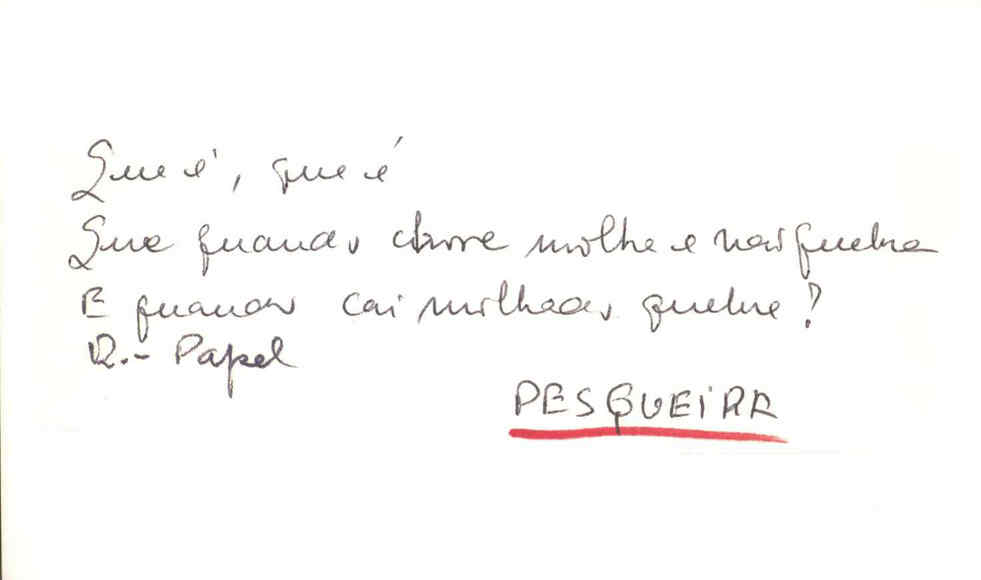 Que é, que é
Que quando chove molha e não quebra
E quando cai molhado quebra?
R.- Papel
PESQUEIRA